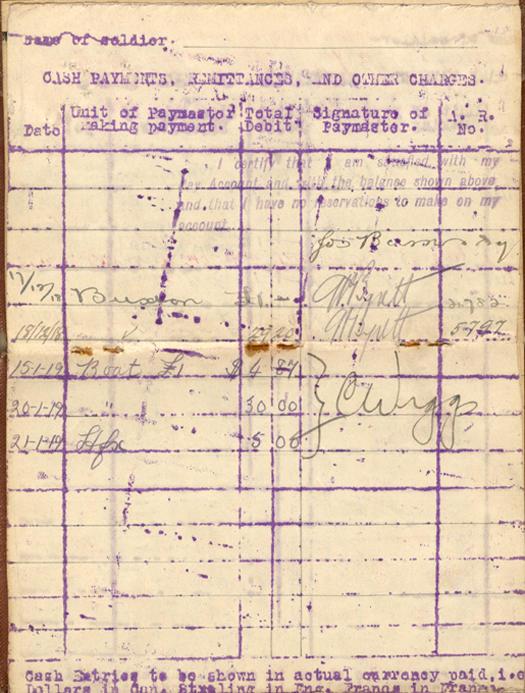 Name of soldier.
CASH PAYMENTS, REMITTANCES, AND OTHER CHARGES.
Date Unit of Paymaster making payment. Total Debit Signature of Paymaster. A. R. No.
I certify that I am satisfied with my
Pay Account and with the balance shown above
and that I have no reservations to make on my
account.
17/12/18 Buxton £1 - -
18/12/18 5792
15-1-19 Boat £1 $4 87
20-1-19 30 00 C Wiggs
21-1-19 Hfx 5 00
Cash Entries to be shown in actual currency paid, i.e
Dollars in Can. Streling in Eng. Francs in France